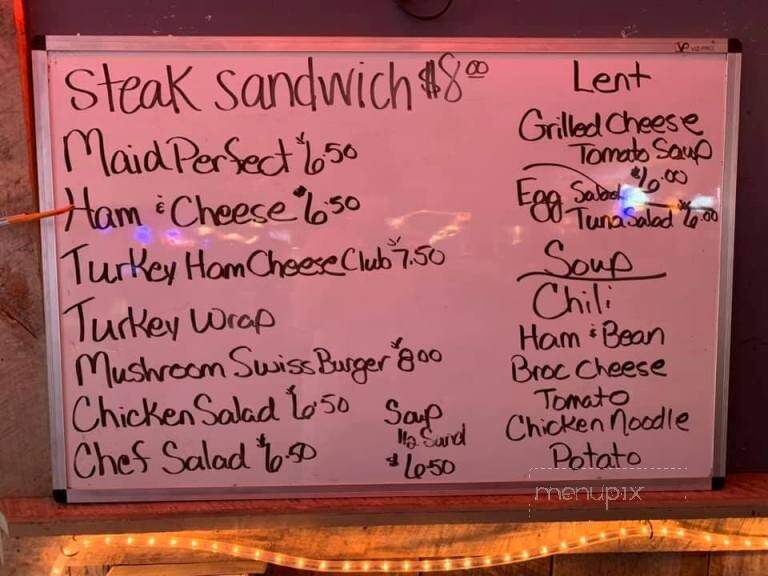 Steak Sandwich $8.00
Maid Perfect $6.50
Ham & Cheese $6.50
Turkey Ham Cheese Club $7.50
Turkey Wrap
Mushroom Swiss Burger $8.00
Chicken Salad $6.50
Chef Salad $6.50
Soup
1/2 Sand
$6.50
Lent
Grilled Cheese
Tomato Soup
$6.00
Egg Salad
Tuna Salad $6.00
Soup
Chili
Ham & Bean
Broc Cheese
Tomato
Chicken Noodle
Potato
menupix